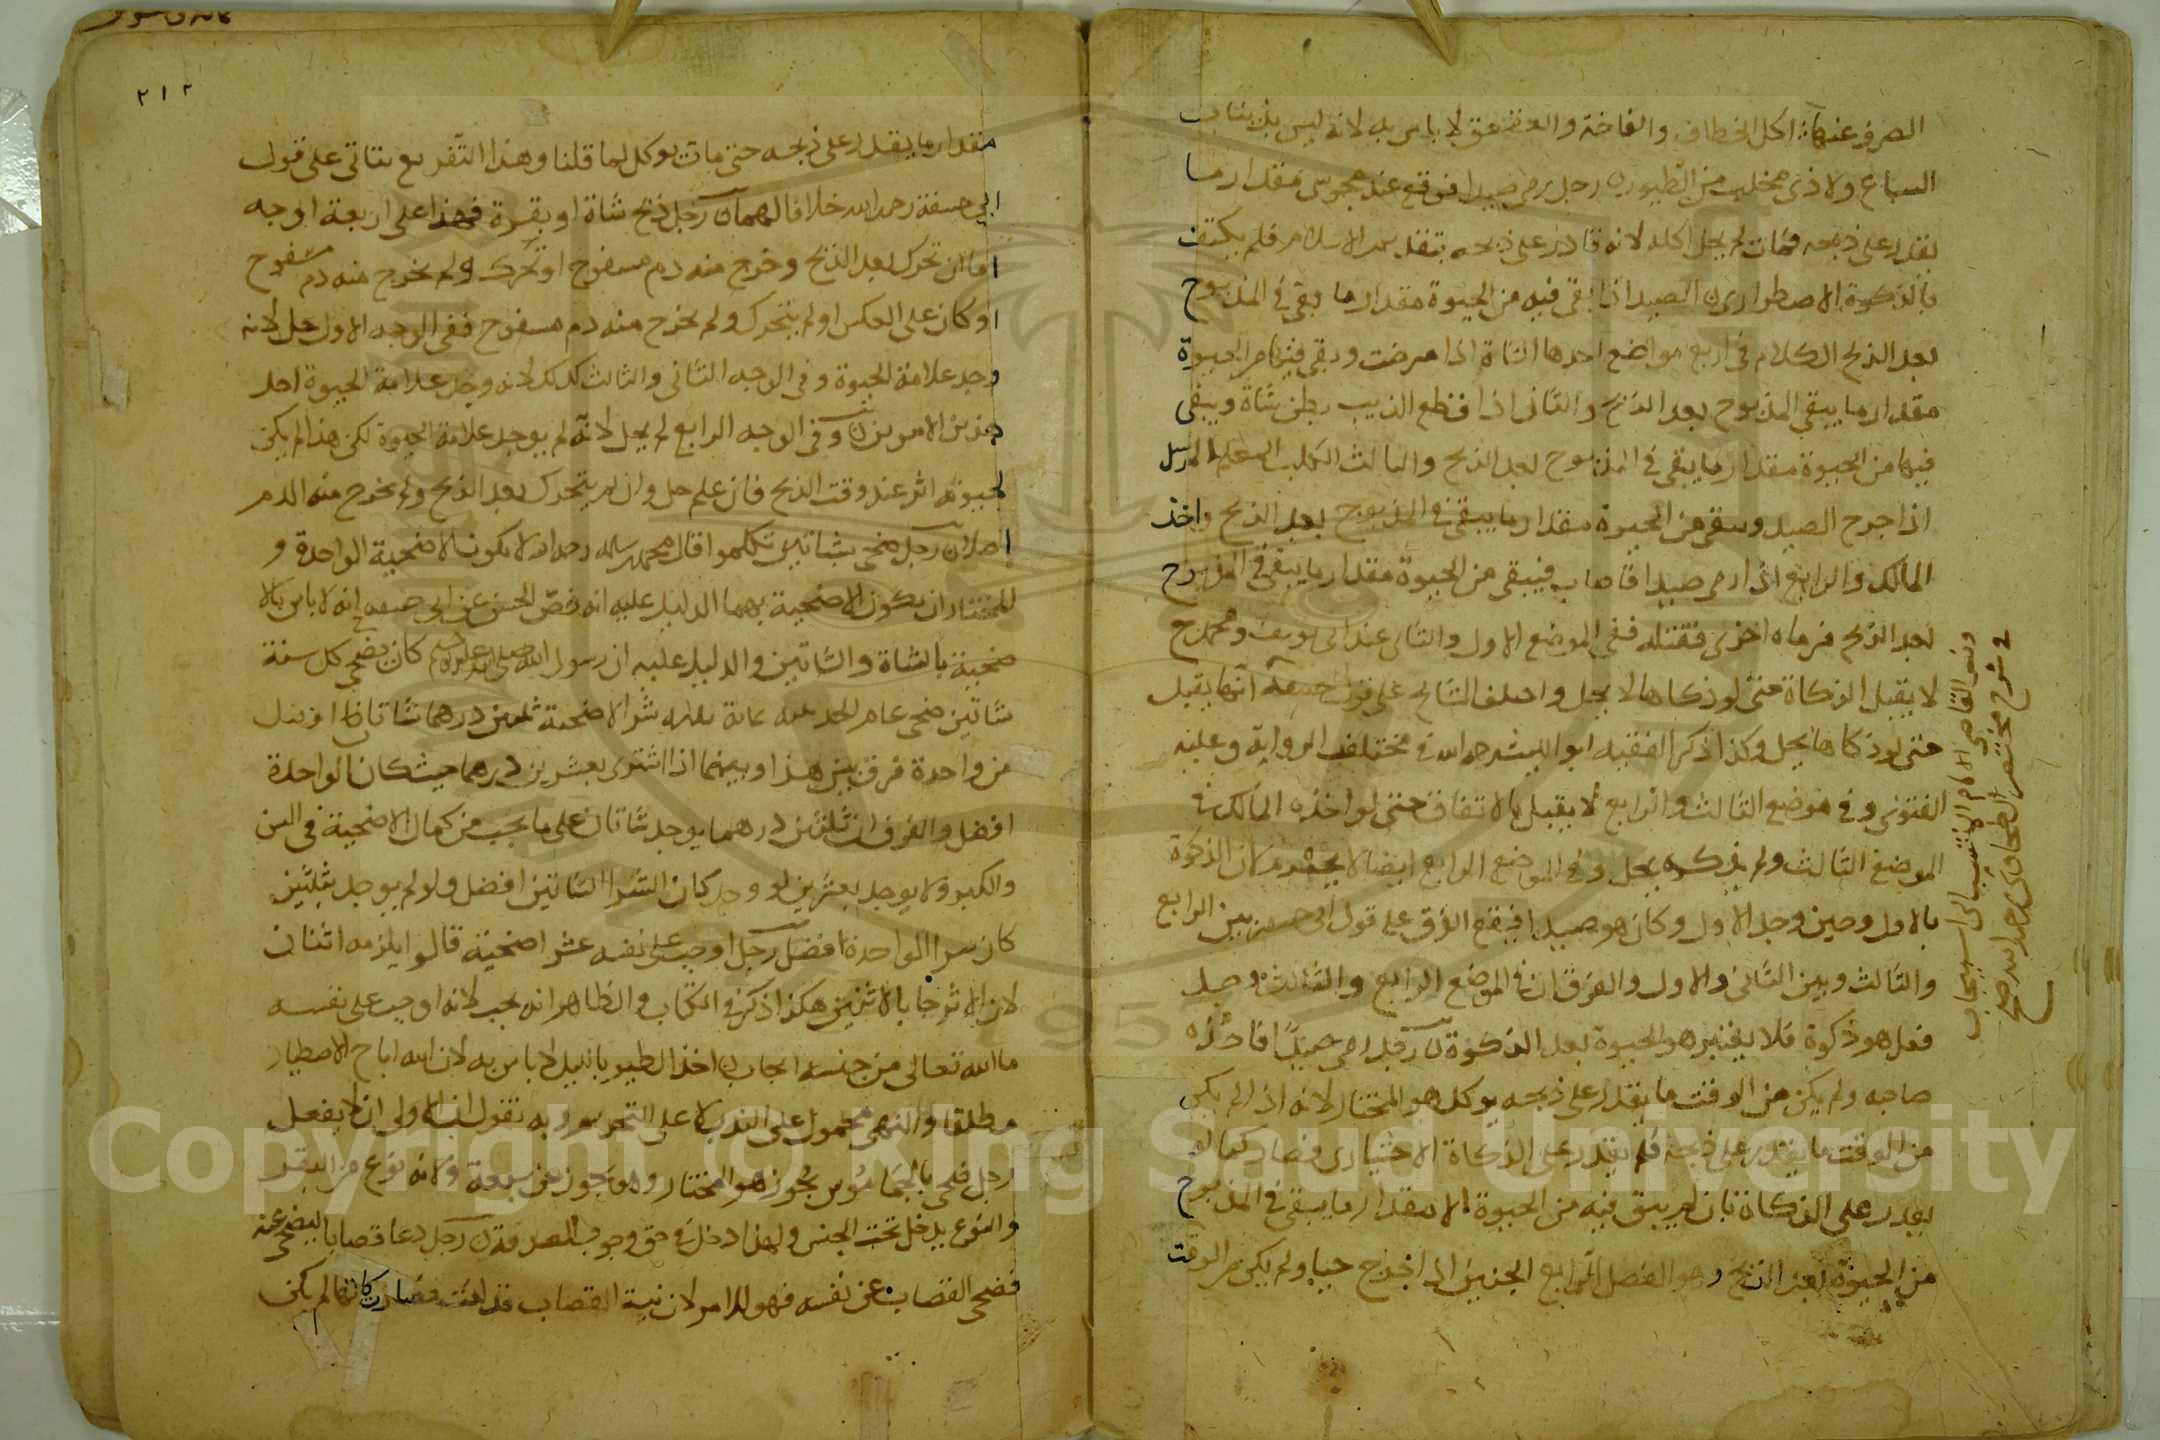 الصرف عنها اكل الخطاف والفاختة والعقعق لا باس به لانه ليس بذي ناب
السباع ولا ذي مخلب من الطيور رجل رمى صيدا فوقع عند مجوسي مقدار ما
يقدر على ذبحه فمات لم يحل اكله لانه قادر على ذبحه بتقديم الاسلام فلم يكتف
بالذكوة الاضطراري الصيد اذا بقي فيه من الحيوة مقدار ما بقي في المذبوح
بعد الذبح الكلام في اربع مواضع احدها الشاة اذا مرضت وبقي فيها من الحيوة
مقدار ما يبقى المذبوح بعد الذبح والثاني اذا قطع الذيب بطن شاة ويبقى
فيها من الحيوة مقدار ما يبقى في المذبوح بعد الذبح والثالث الكلب المعلم المرسل
اذا جرح الصيد وبقي من الحيوة مقدار ما يبقى في المذبوح بعد الذبح واخذ
المالك والرابع اذا رمى صيدا فاصاب فيبقى من الحيوة مقدار ما يبقى في المذبوح
بعد الذبح فرماه اخرى فقتله ففي الموضع الاول والثاني عند ابي يوسف ومحمد رح
لا يقبل الذكاة حتى لو ذكاها لا يحل واختلف المشايخ على قول انها يقبل
حتى لو ذكاها يحل وكذا ذكر الفقيه ابو الليث رحمه الله في مختلف الرواية وعليه
الفتوى وفي موضع الثالث والرابع لا يقبل بالاتفاق حتى لو اخذه المالك في
الموضع الثالث ولم يذكه يحل وفي الموضع الرابع ايضا لا يحرم لان الذكوة
بالاول وحين وجد الاول وكان هو صيدا فيقع الفرق على قول ابي حنيفة بين الرابع
والثالث وبين الثاني والاول والفرق ان في الموضع الرابع والثالث وجد
فعل هو ذكوة فلا يعتبر هو الحيوة بعد الذكوة رجل رمى صيدا فاخذه
صاحبه ولم يكن من الوقت ما يقدر على ذبحه يوكل هو المختار لانه اذا لم يكن
من الوقت ما يقدر على ذبحه فلم يقدر على الذكاة الاختياري فصار كما لو
يقدر على الذكاة بان لم يبق فيه من الحيوة الا مقدار ما يبقى في المذبوح
من الحيوة بعد الذبح وهو الفصل الرابع الجنين اذا اخرج حيا ولم يكن من الوقت
القاضي الامام
في شرح مختصر الطحاوي رحمه الله
٢١٢
مقدار ما يقدر على ذبحه حتى مات يوكل لما قلنا وهذا التفريع يتاتى على قول
ابي حنيفة رحمه الله خلافا لهما رجل ذبح شاة او بقرة فهذا على اربعة اوجه
اما ان تحرك بعد الذبح وخرج منه دم مسفوح او تحرك ولم يخرج منه دم مسفوح
او كان على العكس او لم يتحرك ولم يخرج منه دم مسفوح ففي الوجه الاول حل لانه
وجد علامة الحيوة وفي الوجه الثاني والثالث كذلك لانه وجد علامة الحيوة احد
هذين الامرين وفي الوجه الرابع لم يحل لانه لم يوجد علامة الحيوة لكن هذا لم يكن
لحيوته اثر عند وقت الذبح فان علم حل وان لم يتحرك بعد الذبح ولم يخرج منه الدم
اصلا رجل ضحى بشاتين تكلموا قال محمد بن سلمه رحمه الله لا يكون الاضحية الواحدة و
المختار ان يكون الاضحية بهما الدليل عليه انه نص الحسن عن ابي حنيفة انه لا باس بالا
ضحية بالشاة والشاتين والدليل عليه ان رسول الله صلى الله عليه وسلم كان يضحي كل سنة
شاتين ضحى عام الحديبية بمائة بدنة شرا الاضحية ثلثين درهما شاتان افضل
من واحدة فرق بين هذا وبينما اذا اشترى بعشرين درهما حيث كان الواحدة
افضل والفرق ان ثلثين درهما يوجد شاتان على ما يجب من كمال الاضحية في السن
والكبر ولا يوجد بعشرين لو وجد كان الشرا الشاتين افضل ولو لم يوجد بثلثين
كان شرا الواحدة افضل رجل اوجب على نفسه عشر اضحية قالوا يلزمه اثنتان
لان الاثر جا بالاثنين هكذا ذكر في الكتاب والظاهر انه يجب لانه اوجب على نفسه
ما لله تعالى من جنسه ايجاب اخذ الطير بالليل لا باس به لان الله اباح الاصطياد
مطلقا والنهي محمول على الندب لا على التحريم وبه نقول ان الاولى ان لا يفعل
رجل ضحى بالجاموس يجوز هو المختار وهو يجوز عن سبعة ولانه نوع من البقر
والنوع يدخل تحت الجنس ولهذا دخل في حق وجوب الصدقة رجل دعا قصابا ليضحي عنه
فضحى القصاب عن نفسه فهو للامر لان نية القصاب فصار كانها لم يكن
Copyright © King Saud University